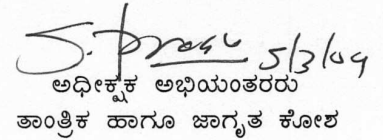 5/3/09
ಅಧೀಕ್ಷಕ ಅಭಿಯಂತರರು
ತಾಂತ್ರಿಕ ಹಾಗೂ ಜಾಗೃತ ಕೋಶ